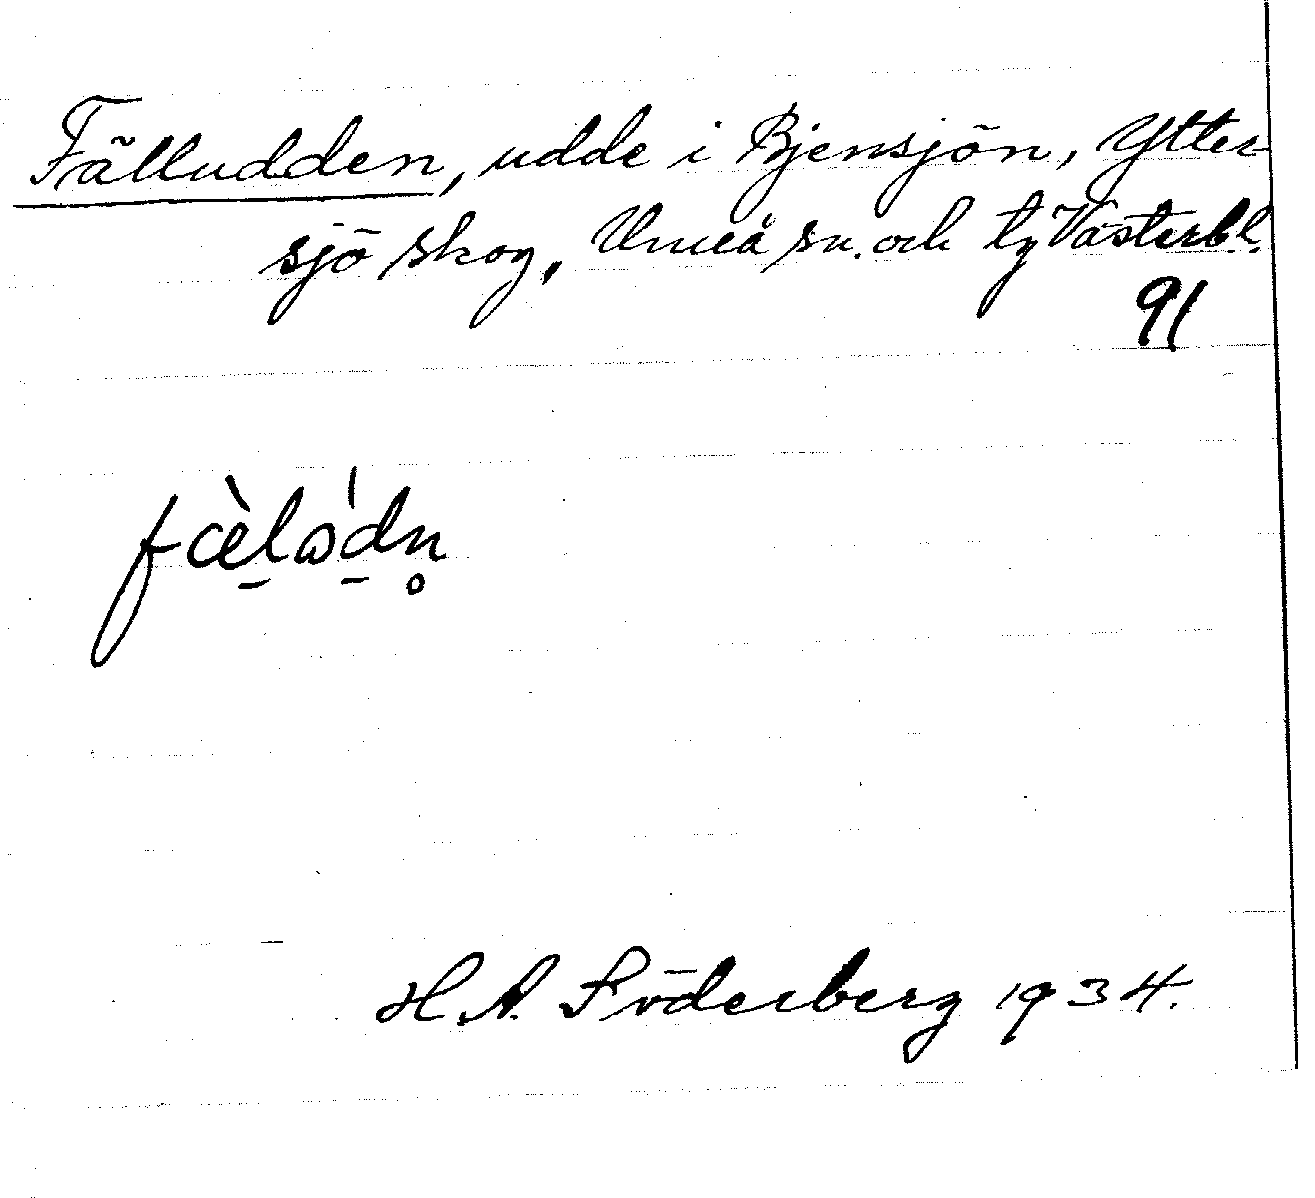 Fälludden, udde i Bjensjön, Ytter-
sjö skog, Umeå sn. och tg Västerb.l.
91
fæ̀lω̍dn̥
H.A. Söderberg 1934.